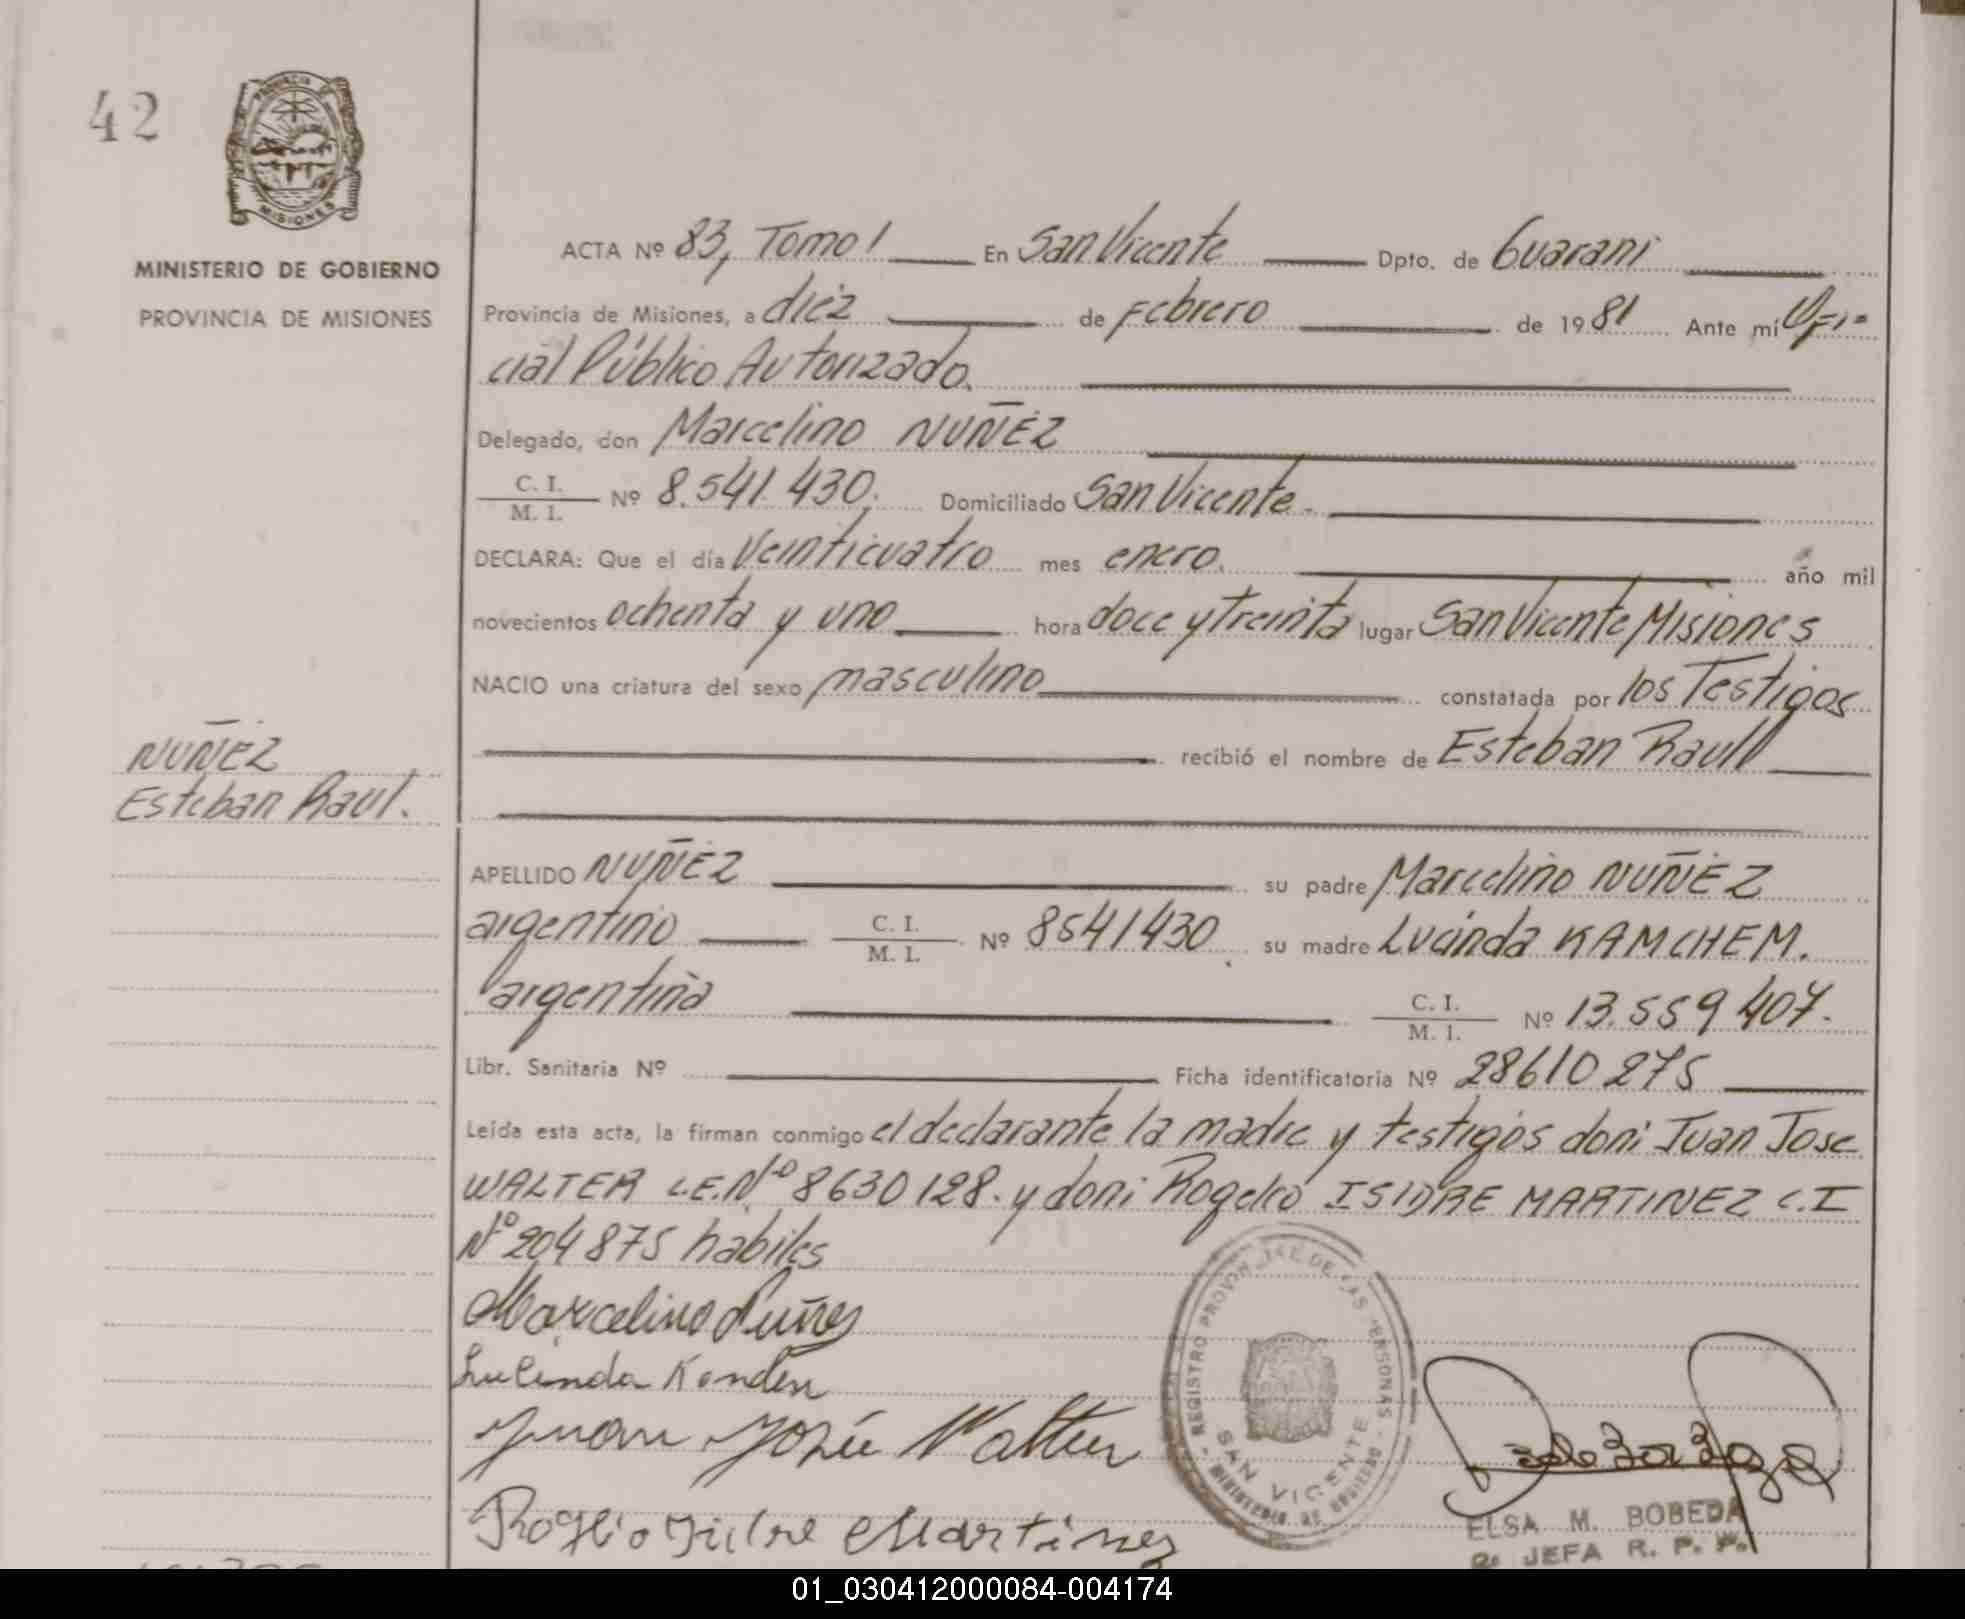 42
PROVINCIA DE
MISIONES
MINISTERIO DE GOBIERNO
PROVINCIA DE MISIONES
ACTA Nº 83, Tomo I En San Vicente Dpto. de Guarani
Provincia de Misiones, a diez de Febrero de 1981 Ante mí Ofi-
cial Público Autorizado.
Delegado, don Marcelino NUÑEZ
C. I.
M. I. Nº 8.541.430. Domiciliado San Vicente.
DECLARA: Que el día Veinticuatro mes enero. año mil
novecientos ochenta y uno hora doce y treinta lugar San Vicente Misiones
NACIO una criatura del sexo masculino constatada por los Testigos
NUÑEZ
recibió el nombre de Esteban Raul
Esteban Raul.
APELLIDO NUÑEZ su padre Marcelino NUÑEZ
argentino C. I.
M. I. Nº 8541430 su madre Lucinda KAMCHEM.
argentina C. I.
M. I. Nº 13.559 407.
Libr. Sanitaria Nº Ficha identificatoria Nº 28610 275
Leída esta acta, la firman conmigo el declarante la madre y testigos don: Juan Jose
WALTER L.E. Nº 8630128. y don: Rogelio ISIDRE MARTINEZ C.I
Nº 204875 habiles
Marcelino Nuñes
Lucinda
Juan José Walter
Martinez
REGISTRO PROVINCIAL DE LAS PERSONAS
SAN VICENTE
MINISTERIO DE GOBIERNO
ELSA M. BOBEDA
JEFA R. P. P.
01_030412000084-004174